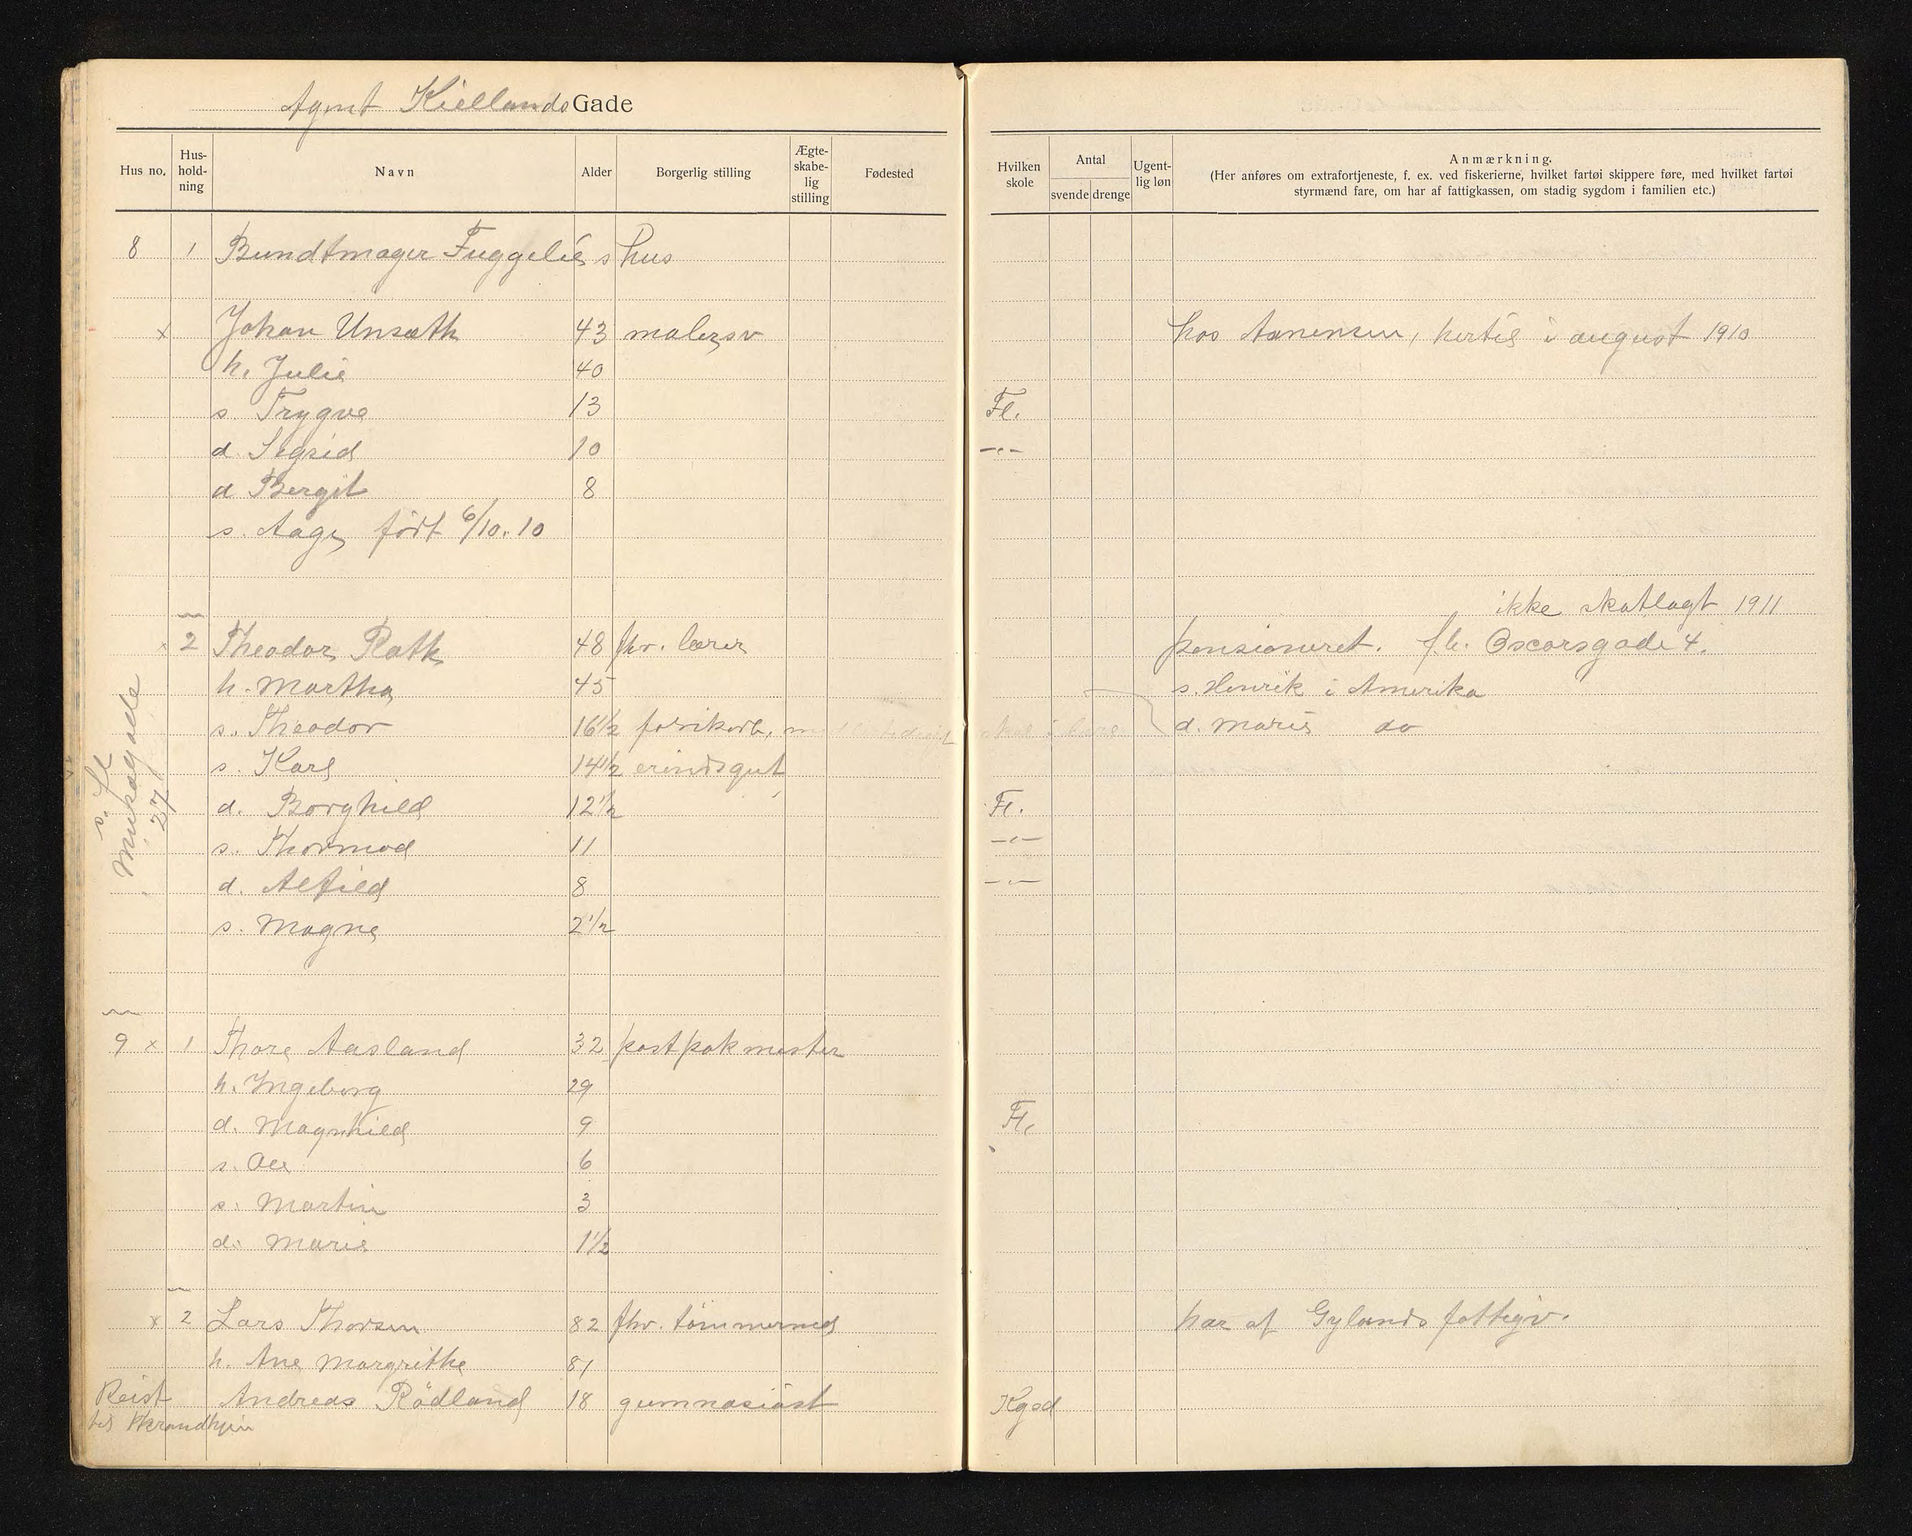 Agent Kiellands Gade
Hus no. Hus-hold-ning Navn Alder Borgerlig stilling Ægte-skabe-lig stilling Fødested Hvilken skole Antal svende drenge Ugent-lig løn Anmærkning.
(Her anføres om extrafortjeneste, f. ex. ved fiskerierne, hvilket fartøi skippere føre, med hvilket fartøi
styrmænd fare, om har af fattigkassen, om stadig sygdom i familien etc.)
8 1 Bundtmager Fuggelie s hus
x Johan Unsæth 43 malersv hos Aanensen, hertil i august 1910
h. Julie 40
s. Trygve 13 Fl.
d. Sigrid 10 -"-
d Bergit 8
s. Aage født 6/10.10
ikke skatlagt 1911
x 2 Theodor Rath 48 fhv. lærer pensioneret. f.b. Oscarsgade 4.
h. Martha 45 s. Henrik i Amerika
s. Theodor 16½ fabrikarb. d. Marie do
s. Karl 14½ erindsgut
d. Borghild 12½ Fl.
s. Thormod 11 -"-
d. Alfild 8 -"-
s. Magne 2½
s. St
Misagade
27
9 x 1 Thore Aasland 32 postpakmester
h. Ingeborg 29
d. Magnhild 9 Fl.
s. Ole 6
s. Martin 3
d. Marie 1½
x 2 Lars Thorsen 82 fhv. tømmermd har af Gylands fattigv.
h. Ane Margrithe 81
Reist Andreas Rödland 18 gumnasiast Kgsd
til Thrandhjem